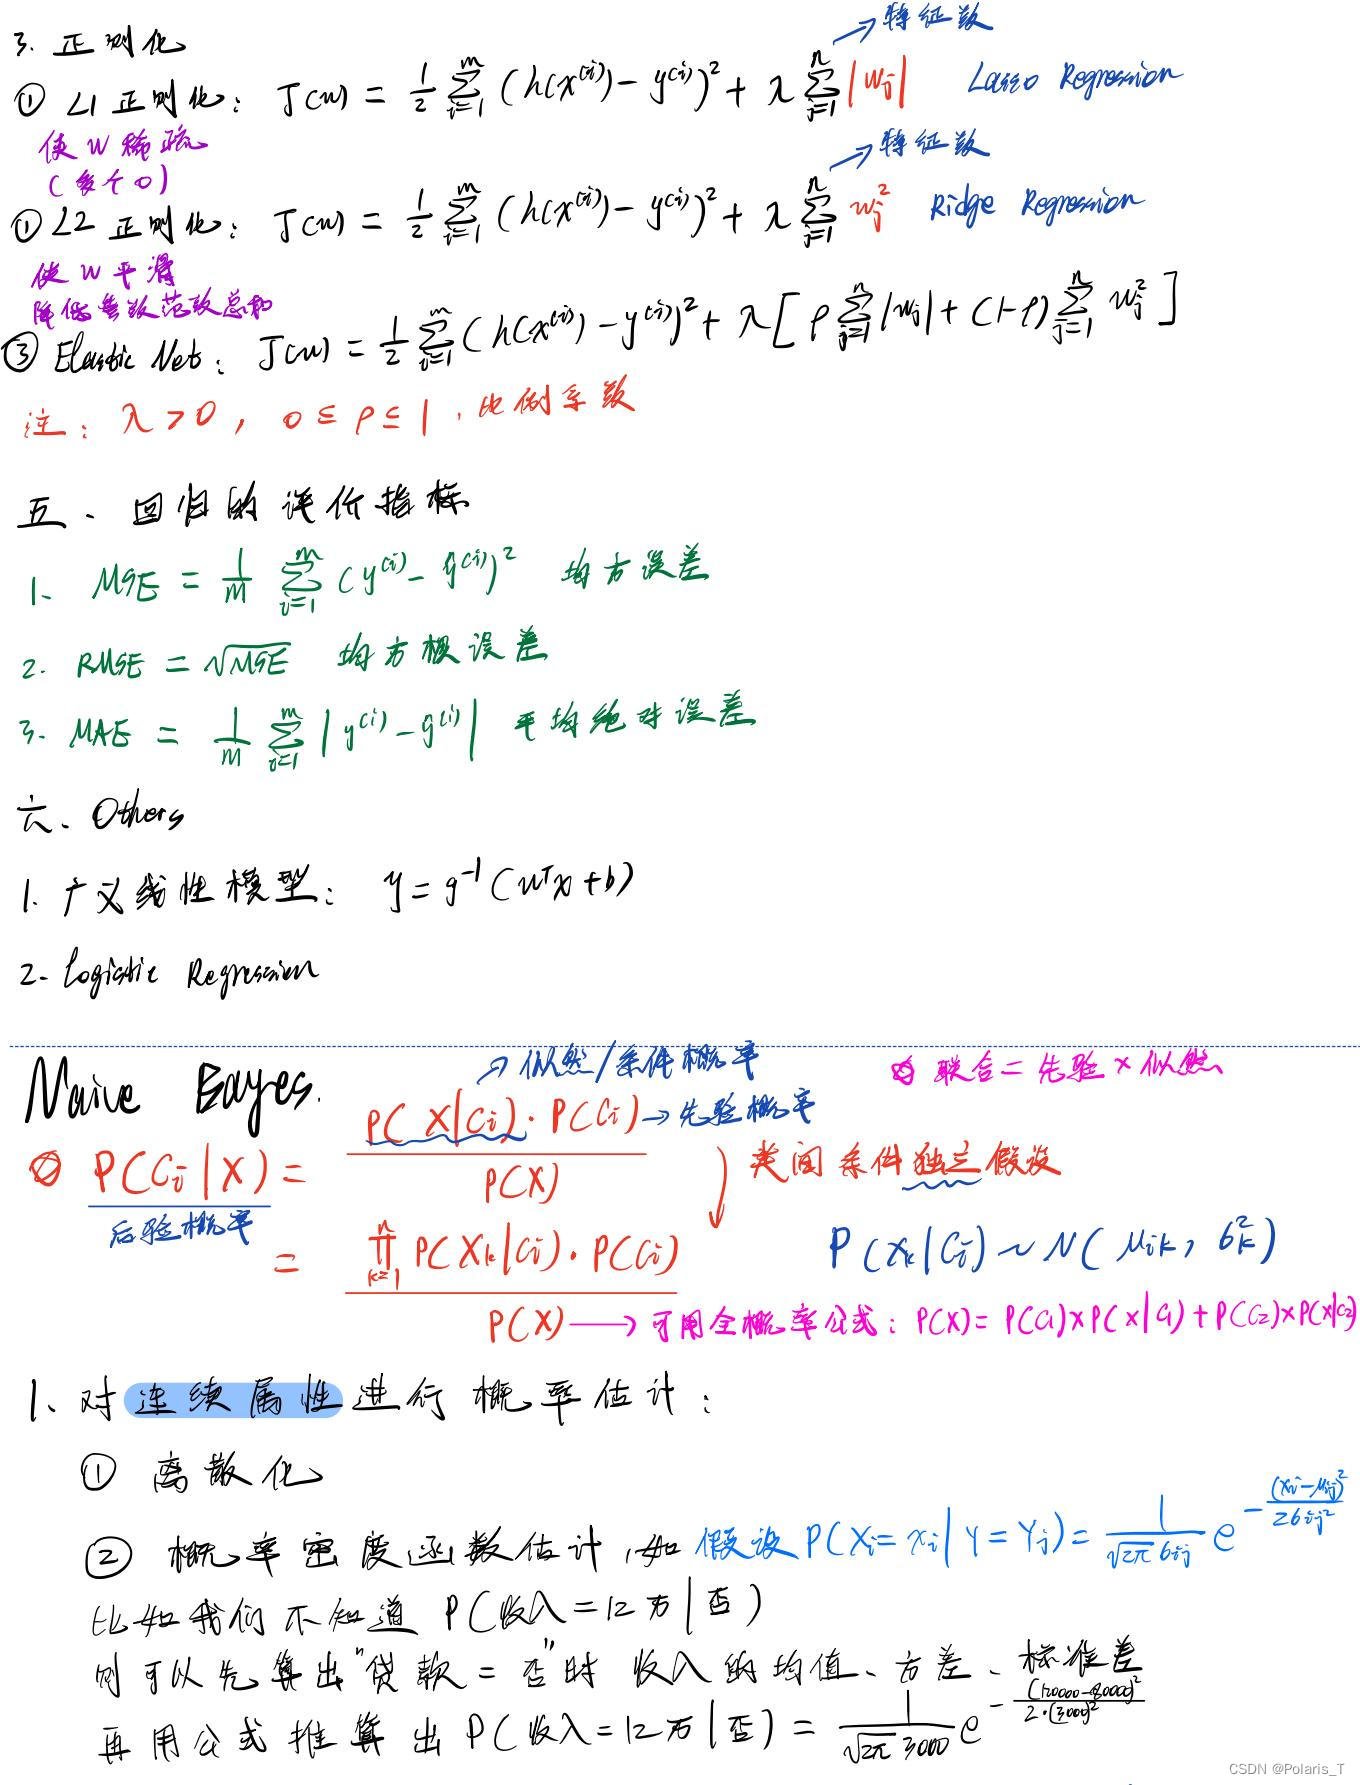 →特征数
3. 正则化
① L1 正则化: J(w) = 1/2 ∑_{i=1}^{m} (h(x^{(i)}) - y^{(i)})^2 + λ ∑_{j=1}^{n} |w_j| Lasso Regression
使 w 稀疏
(多个0)
→特征数
① L2 正则化: J(w) = 1/2 ∑_{i=1}^{m} (h(x^{(i)}) - y^{(i)})^2 + λ ∑_{j=1}^{n} w_j^2 Ridge Regression
使 w 平滑
降低参数范数总和
③ Elastic Net: J(w) = 1/2 ∑_{i=1}^{m} (h(x^{(i)}) - y^{(i)})^2 + λ [ρ ∑_{j=1}^{n} |w_j| + (1-ρ) ∑_{j=1}^{n} w_j^2]
注: λ > 0, 0 ≤ ρ ≤ 1, 比例系数
五、回归的评价指标
1、 MSE = 1/m ∑_{i=1}^{m} (y^{(i)} - ŷ^{(i)})^2 均方误差
2. RMSE = √MSE 均方根误差
3. MAE = 1/m ∑_{i=1}^{m} |y^{(i)} - ŷ^{(i)}| 平均绝对误差
六、Others
1. 广义线性模型: y = g^{-1}(w^T x + b)
2. Logistic Regression
→似然/条件概率 联合=先验×似然
Naive Bayes.
P(C_i|X) = P(X|C_i)·P(C_i) / P(X) →先验概率 类间条件独立假设
后验概率
= ∏_{k=1}^{n} P(X_k|C_i)·P(C_i) / P(X) P(X_k|C_i) ~ N(μ_{ik}, σ_k^2)
→可用全概率公式: P(X) = P(C_1)×P(X|C_1) + P(C_2)×P(X|C_2)
1、对连续属性进行概率估计:
① 离散化
② 概率密度函数估计,如假设 P(X_i = x_i | Y = Y_j) = 1/(√2π σ_{ij}) e^{-(x_i-μ_{ij})^2/2σ_{ij}^2}
比如我们不知道 P(收入=12万|否)
则可以先算出"贷款=否"时 收入的均值、方差、标准差
再用公式推算出 P(收入=12万|否) = 1/(√2π 3000) e^{-(120000-80000)^2/2·(3000)^2}
CSDN @Polaris_T